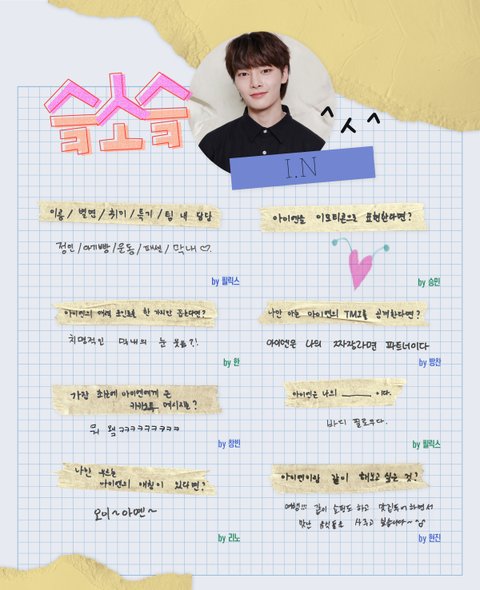 슼소슼
^ㅅ^
I.N
이름 / 별명 / 취미 / 특기 / 팀 내 담당
정인 / 아기빵 / 운동 / 패션 / 막내♡
by 필릭스
아이엔을 이모티콘으로 표현한다면?
by 승민
아이엔의 매력 포인트를 한 가지만 꼽는다면?
치명적인 막내의 눈 웃음?!
by 한
나만 아는 아이엔의 TMI를 공개한다면?
아이엔은 나의 짜장라면 파트너이다
by 방찬
가장 최근에 아이엔에게 온
카카오톡 메시지는?
뭐 햄ㅋㅋㅋㅋㅋㅋㅋㅋ
by 창빈
아이엔은 나의 ______ 이다.
바디 필로우다.
by 필릭스
나만 부르는
아이엔의 애칭이 있다면?
오이~아옌~
by 리노
아이엔이랑 같이 해보고 싶은 것?
여행!!! 같이 쇼핑도 하고 맛집투어 하면서
맛난 음식들을 사주고 싶습니다~
by 현진